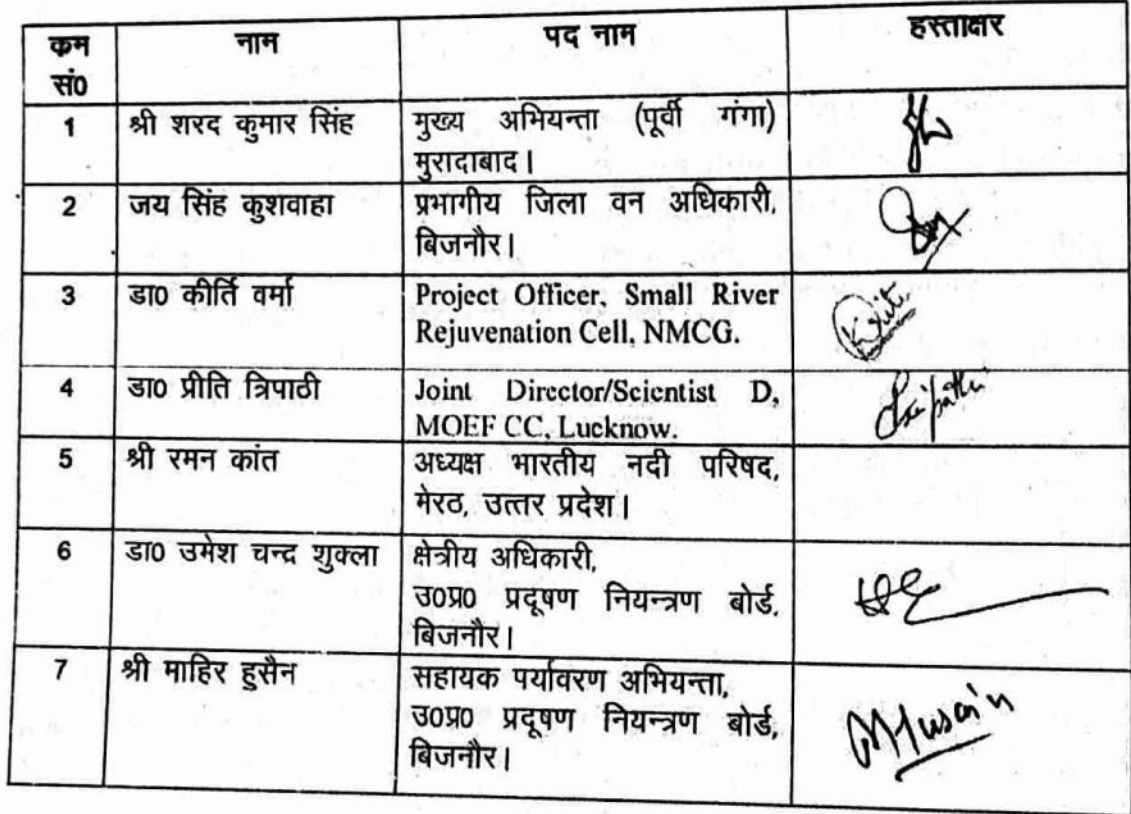 कम नाम पद नाम हस्ताक्षर
सं0
1 श्री शरद कुमार सिंह मुख्य अभियन्ता (पूर्वी गंगा)
मुरादाबाद।
2 जय सिंह कुशवाहा प्रभागीय जिला वन अधिकारी,
बिजनौर।
3 डा0 कीर्ति वर्मा Project Officer, Small River
Rejuvenation Cell, NMCG.
4 डा0 प्रीति त्रिपाठी Joint Director/Scientist D,
MOEF CC, Lucknow.
5 श्री रमन कांत अध्यक्ष भारतीय नदी परिषद,
मेरठ, उत्तर प्रदेश।
6 डा0 उमेश चन्द्र शुक्ला क्षेत्रीय अधिकारी,
उ0प्र0 प्रदूषण नियन्त्रण बोर्ड,
बिजनौर।
7 श्री माहिर हुसैन सहायक पर्यावरण अभियन्ता,
उ0प्र0 प्रदूषण नियन्त्रण बोर्ड,
बिजनौर।